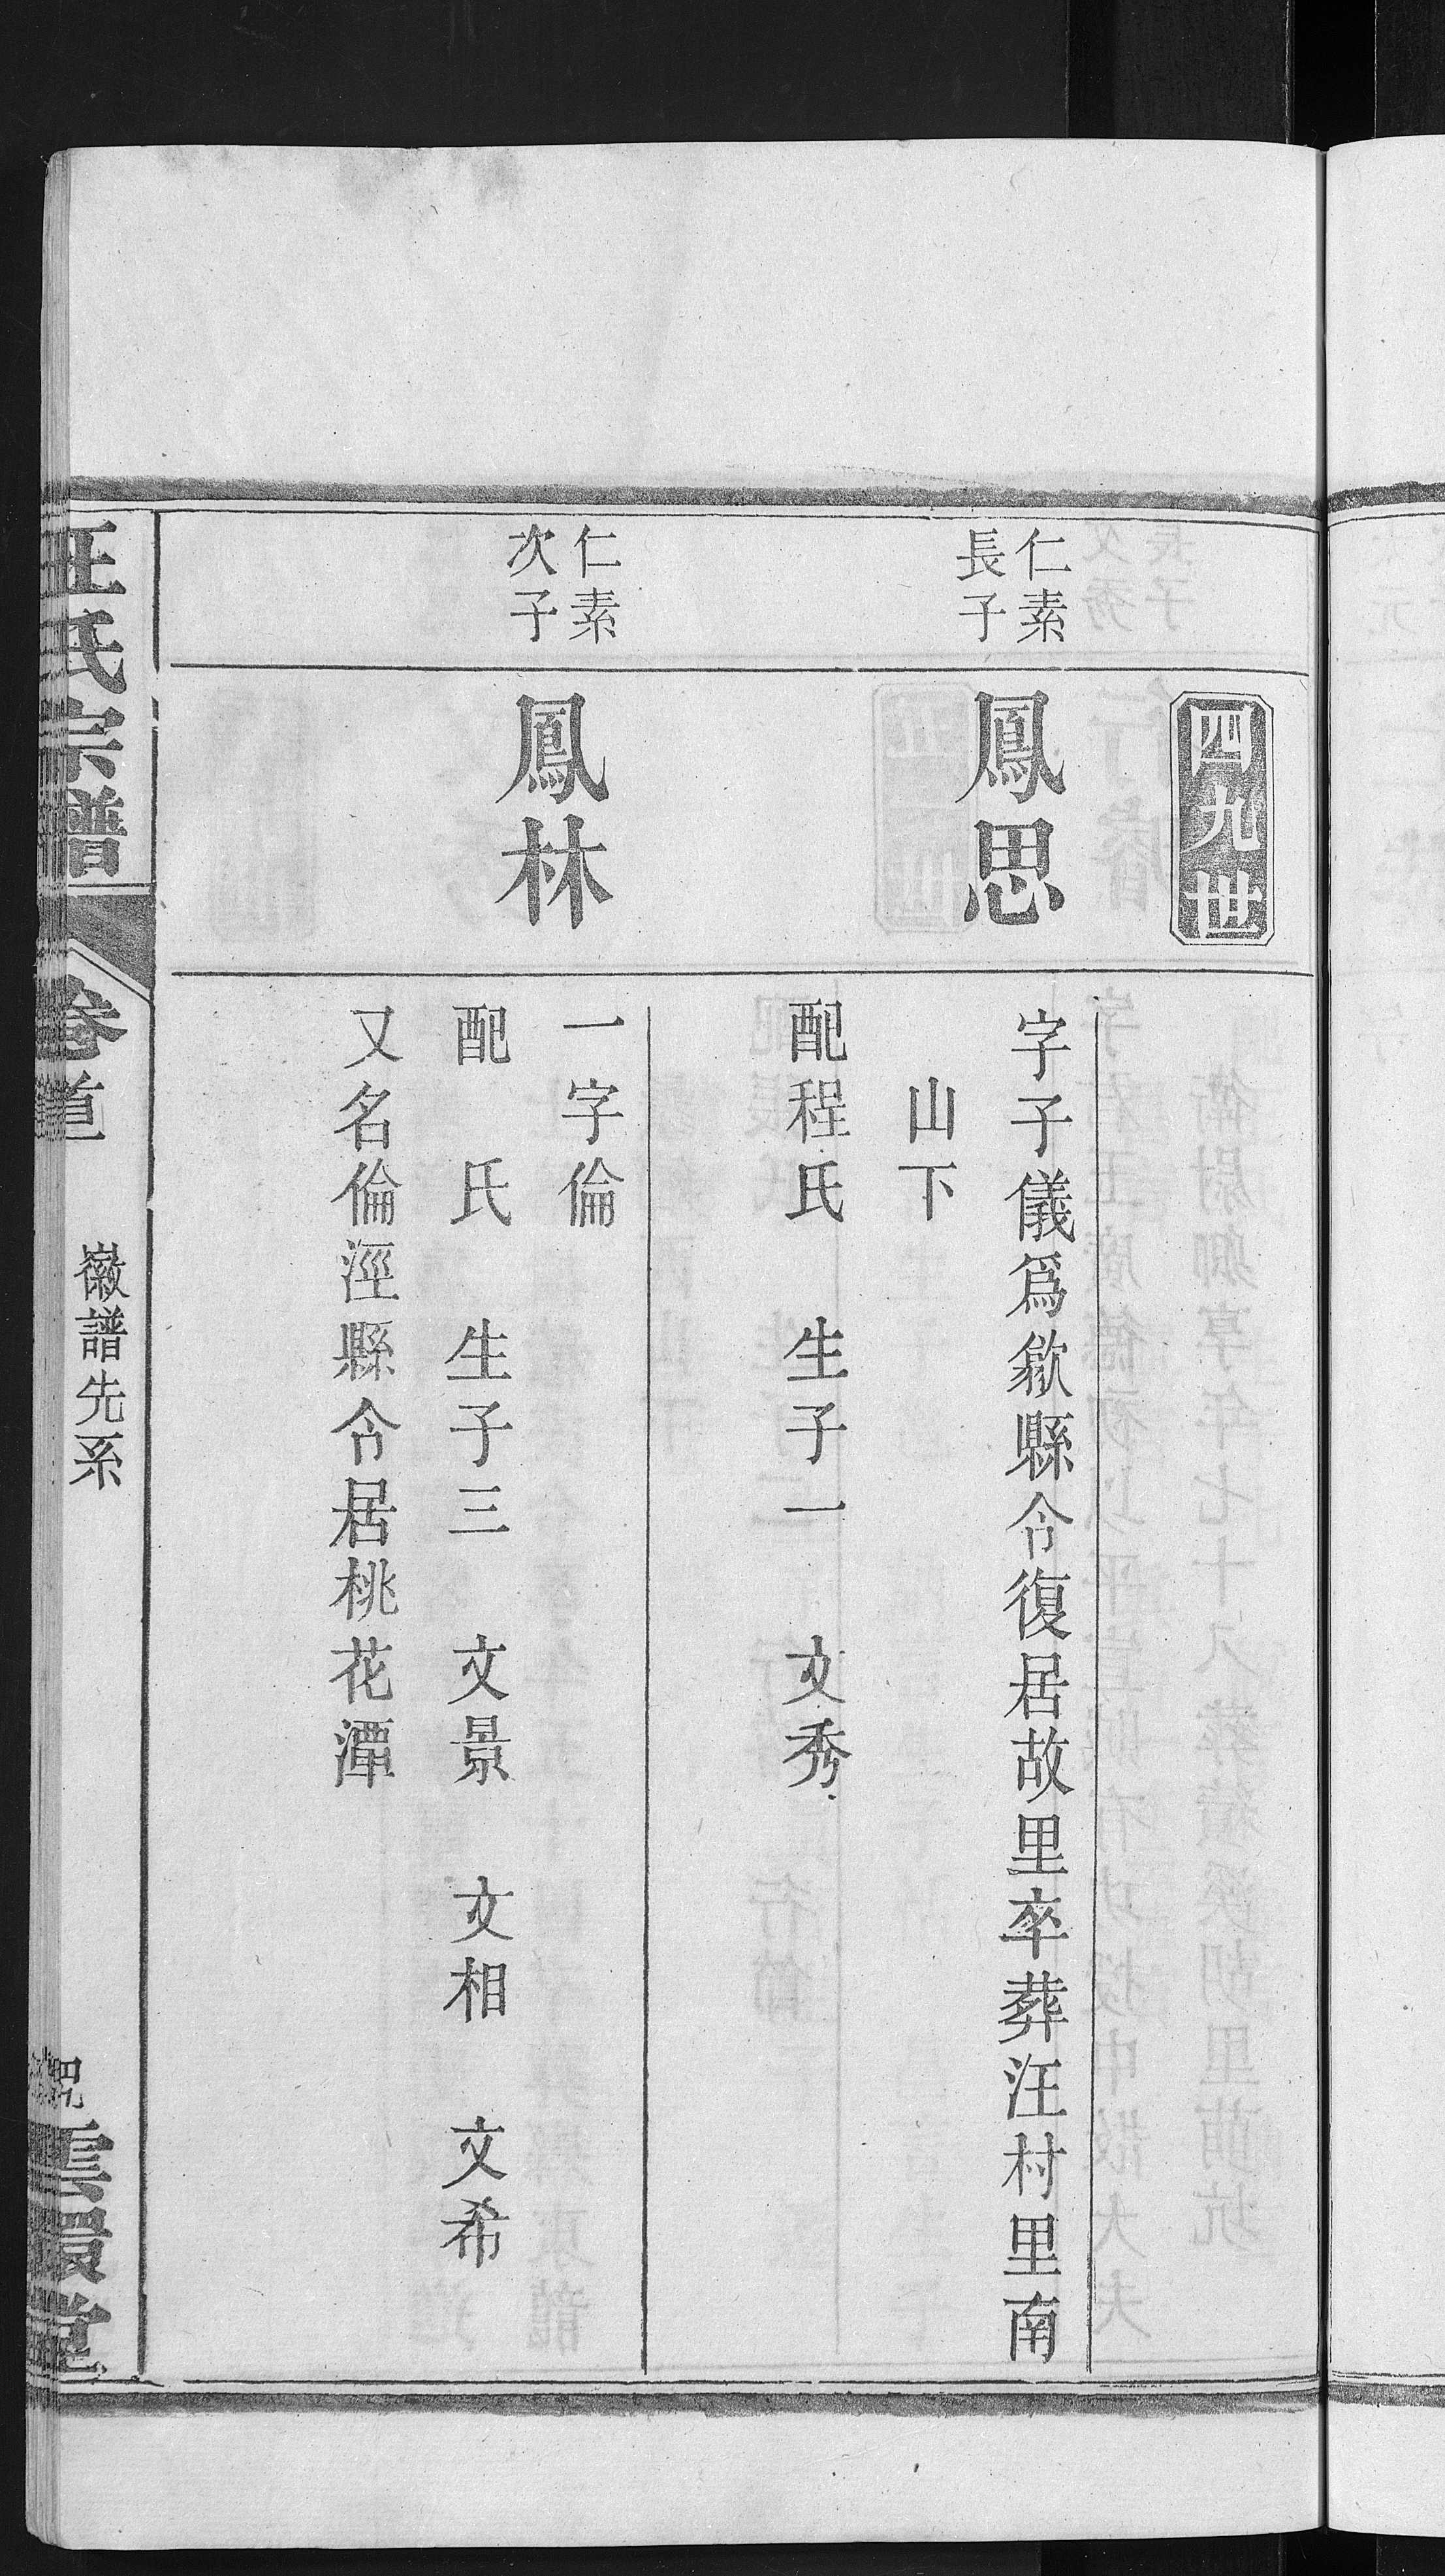 四九世
仁素
長子
鳳思
字子儀爲歙縣令復居故里卒葬汪村里南
山下
配程氏 生子一 文秀
仁素
次子
鳳林
一字倫
配 氏 生子三 文景 文相 文希
又名倫涇縣令居桃花潭
汪氏宗譜 卷首 徽譜先系